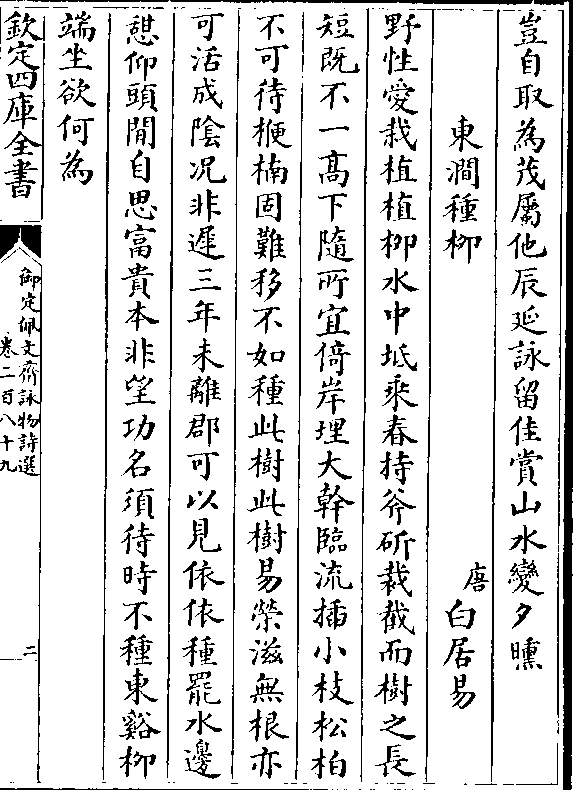 豈自取為茂屬他辰延詠留佳賞山水變夕曛
東澗種柳
唐 白居易
野性愛栽植植柳水中坻乘春持斧斫裁截而樹之長
短既不一高下隨所宜倚岸埋大幹臨流插小枝松柏
不可待楩楠固難移不如種此樹此樹易榮滋無根亦
可活成陰况非遲三年未離郡可以見依依種罷水邊
憇仰頭閒自思富貴本非望功名須待時不種東谿柳
端坐欲何為
欽定四庫全書
御定佩文齋詠物詩選
卷二百八十九
二